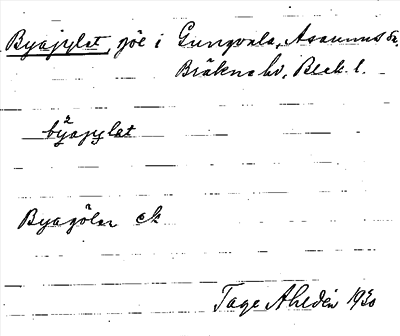 Byagylet, sjö i Gungvala, Asarums sn,
Bräkne hd, Blek. l.
byagylet
Byagölen ek
Tage Ahldén 1930